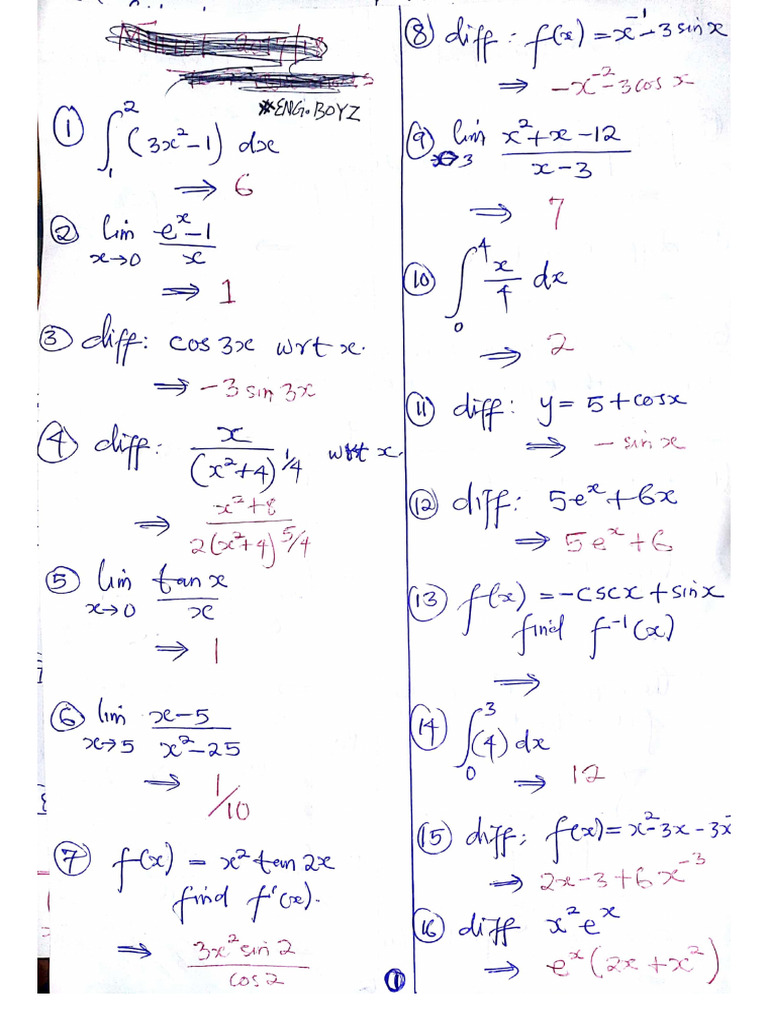 *ENG. BOYZ
① ∫₁² (3x²-1) dx
⇒ 6
② lim x→0 (eˣ-1)/x
⇒ 1
③ diff: cos 3x wrt x.
⇒ -3 sin 3x
④ diff: x/(x²+4)^1/4 wrt x.
⇒ (x²+8)/(2(x²+4)^5/4)
⑤ lim x→0 tan x/x
⇒ 1
⑥ lim x→5 (x-5)/(x²-25)
⇒ 1/10
⑦ f(x) = x² tan 2x
find f'(x).
⇒ (3x² sin 2)/(cos 2)
①
⑧ diff: f(x) = x⁻¹-3 sin x
⇒ -x⁻²-3cos x
⑨ lim x→3 (x²+x-12)/(x-3)
⇒ 7
⑩ ∫₀⁴ x/4 dx
⇒ 2
⑪ diff: y = 5+cosx
⇒ - sin x
⑫ diff: 5eˣ+6x
⇒ 5eˣ+6
⑬ f(x) = -cscx + sinx
find f⁻¹(x)
⇒
⑭ ∫₀³ (4) dx
⇒ 12
⑮ diff; f(x) = x²-3x-3x⁻
⇒ 2x-3+6x⁻³
⑯ diff x²eˣ
⇒ eˣ(2x+x²)